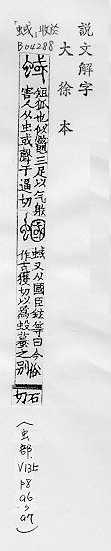 說文解字
大徐本
「蜮」收於
B04288
短狐也似鼈三足以气䠶
害人从虫或聲于逼切
蜮又从國臣鉉等曰今俗
作古獲切以為蝦蟇之別
(虫部.
V13上
p8
a6、
a7)